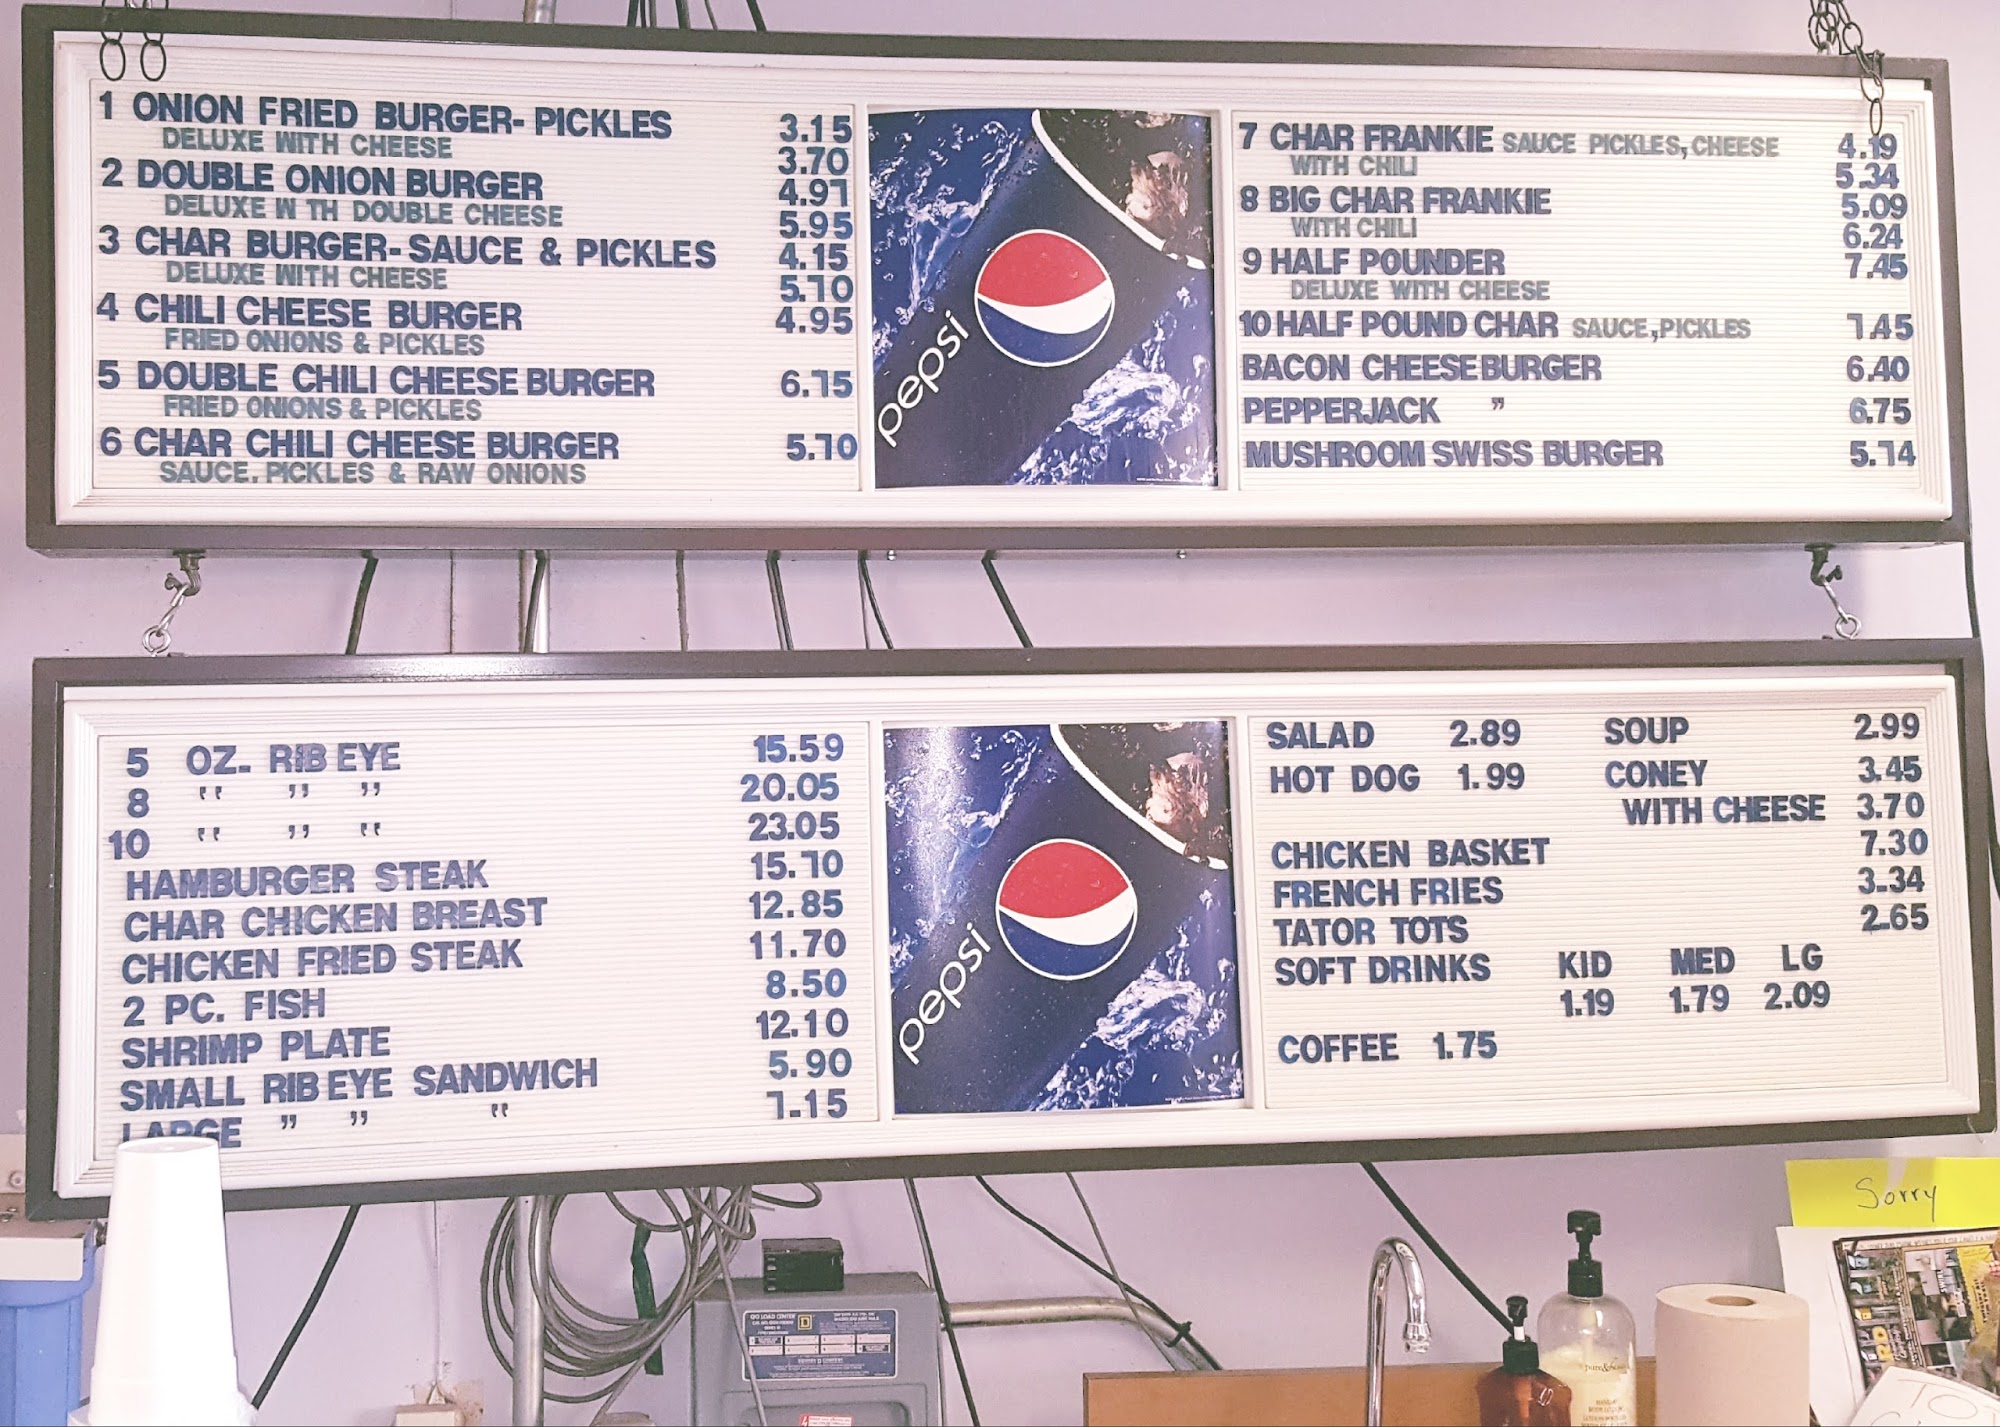 1 ONION FRIED BURGER- PICKLES 3.15
DELUXE WITH CHEESE 3.70
2 DOUBLE ONION BURGER 4.97
DELUXE W TH DOUBLE CHEESE 5.95
3 CHAR BURGER- SAUCE & PICKLES 4.15
DELUXE WITH CHEESE 5.70
4 CHILI CHEESE BURGER 4.95
FRIED ONIONS & PICKLES
5 DOUBLE CHILI CHEESE BURGER 6.75
FRIED ONIONS & PICKLES
6 CHAR CHILI CHEESE BURGER 5.70
SAUCE. PICKLES & RAW ONIONS
pepsi
7 CHAR FRANKIE SAUCE PICKLES, CHEESE 4.19
WITH CHILI 5.34
8 BIG CHAR FRANKIE 5.09
WITH CHILI 6.24
9 HALF POUNDER 7.45
DELUXE WITH CHEESE
10 HALF POUND CHAR SAUCE, PICKLES 7.45
BACON CHEESEBURGER 6.40
PEPPERJACK " 6.75
MUSHROOM SWISS BURGER 5.74
5 OZ. RIB EYE 15.59
8 " " " 20.05
10 " " " 23.05
HAMBURGER STEAK 15.70
CHAR CHICKEN BREAST 12.85
CHICKEN FRIED STEAK 11.70
2 PC. FISH 8.50
SHRIMP PLATE 12.10
SMALL RIB EYE SANDWICH 5.90
LARGE " " " 7.15
pepsi
SALAD 2.89 SOUP 2.99
HOT DOG 1.99 CONEY 3.45
WITH CHEESE 3.70
CHICKEN BASKET 7.30
FRENCH FRIES 3.34
TATOR TOTS 2.65
SOFT DRINKS KID MED LG
1.19 1.79 2.09
COFFEE 1.75
Sorry